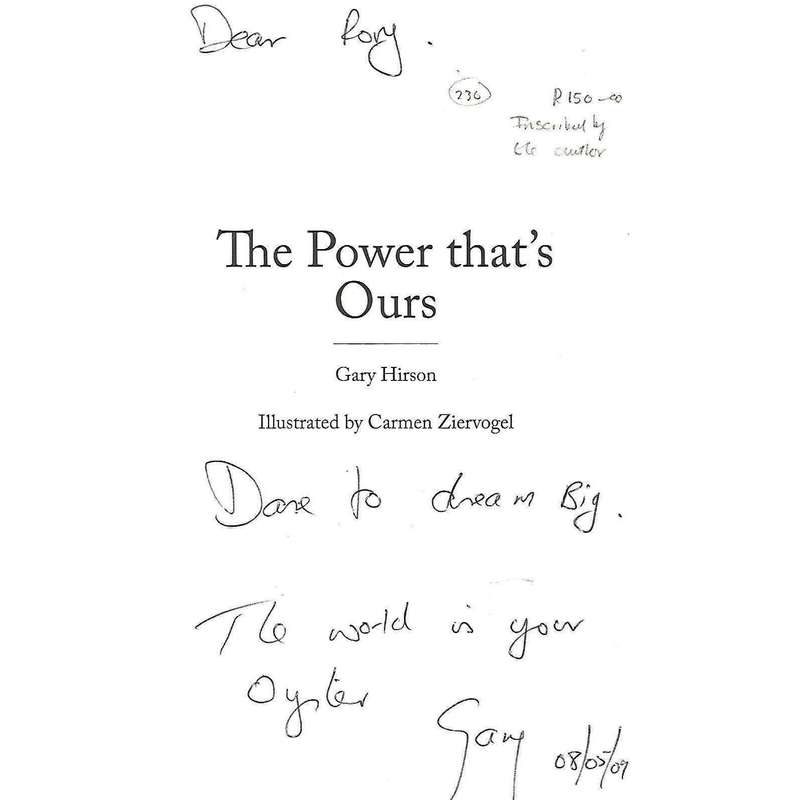 Dear Rory.
236 R150-00
Inscribed by
the author
The Power that's
Ours
Gary Hirson
Illustrated by Carmen Ziervogel
Dare to dream Big.
The world is your
Oyster
Gary 08/05/09